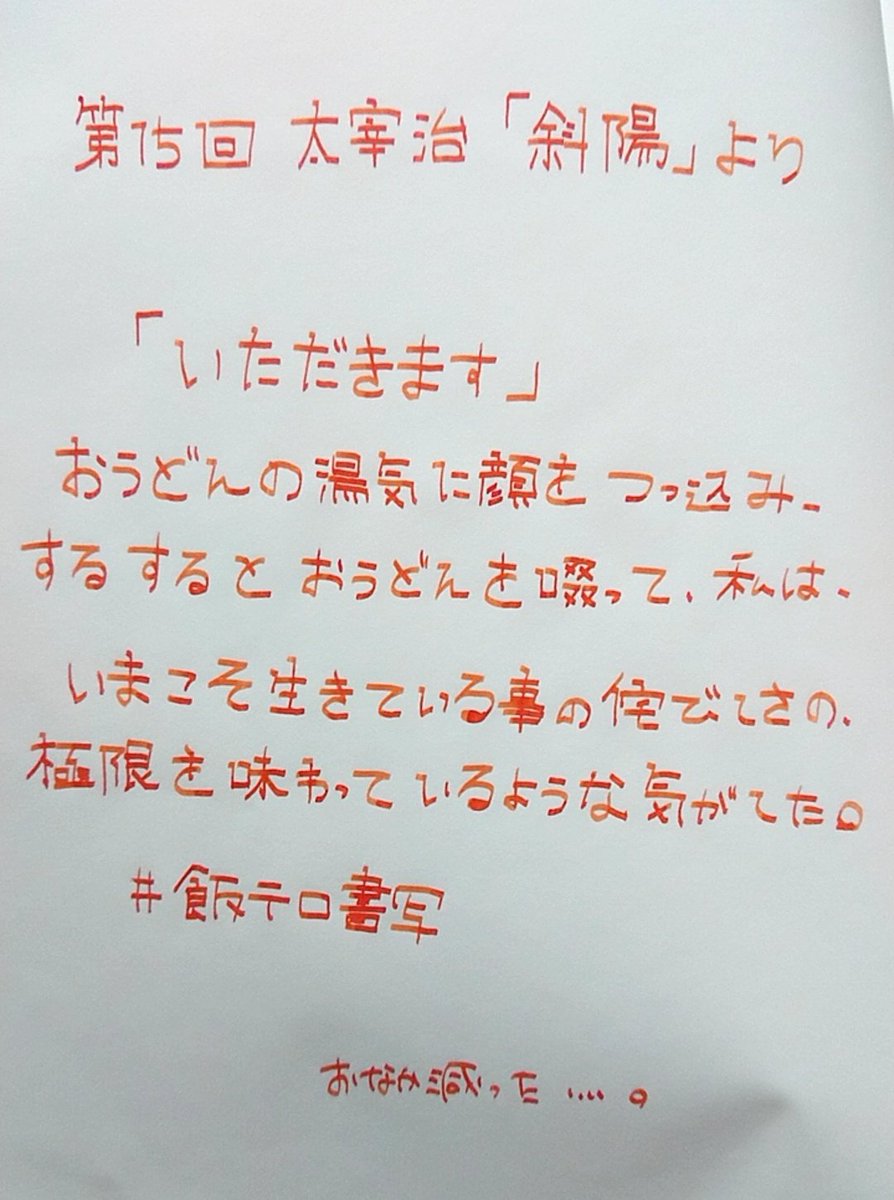 第15回 太宰治「斜陽」より
「いただきます」
おうどんの湯気に顔をつっ込み、
するするとおうどんを啜って、私は、
いまこそ生きている事の侘びしさの、
極限を味わっているような気がした。
#飯テロ書写
おなか減った....。